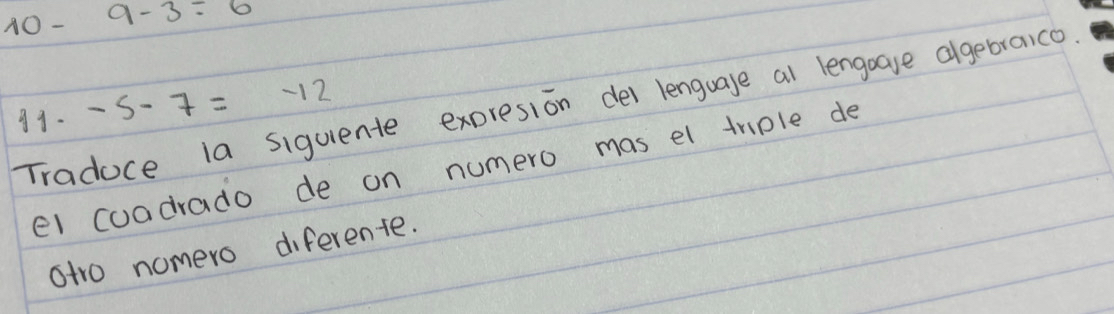 10- 9-3= 6
11. -5-7= -12
Traduce la siguiente expresión del lenguaje al lengoaje algebraico.
el cuadrado de un numero mas el triple de
otro numero diferente.